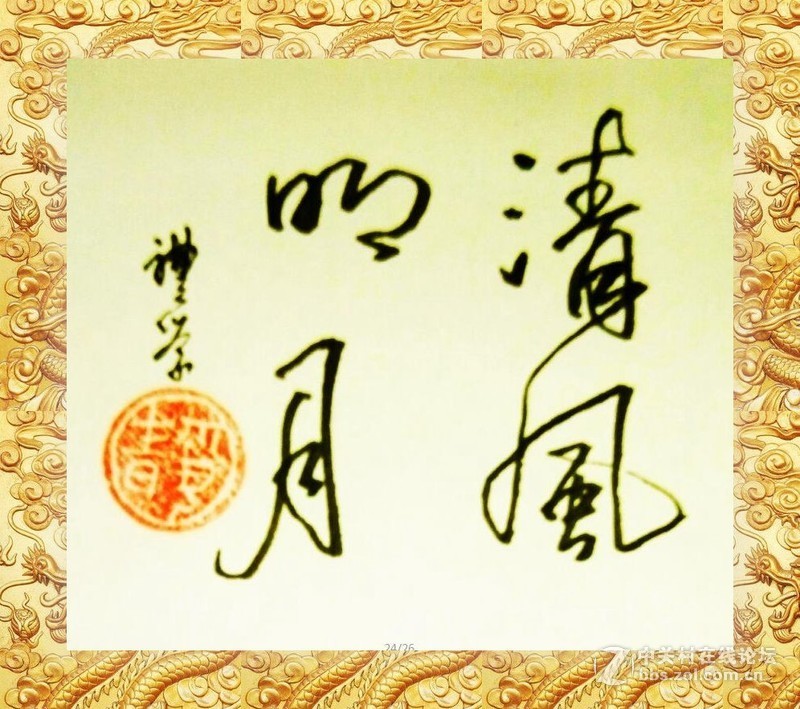 清風
明月
禮学
24/26
中关村在线论坛
bbs.zol.com.cn